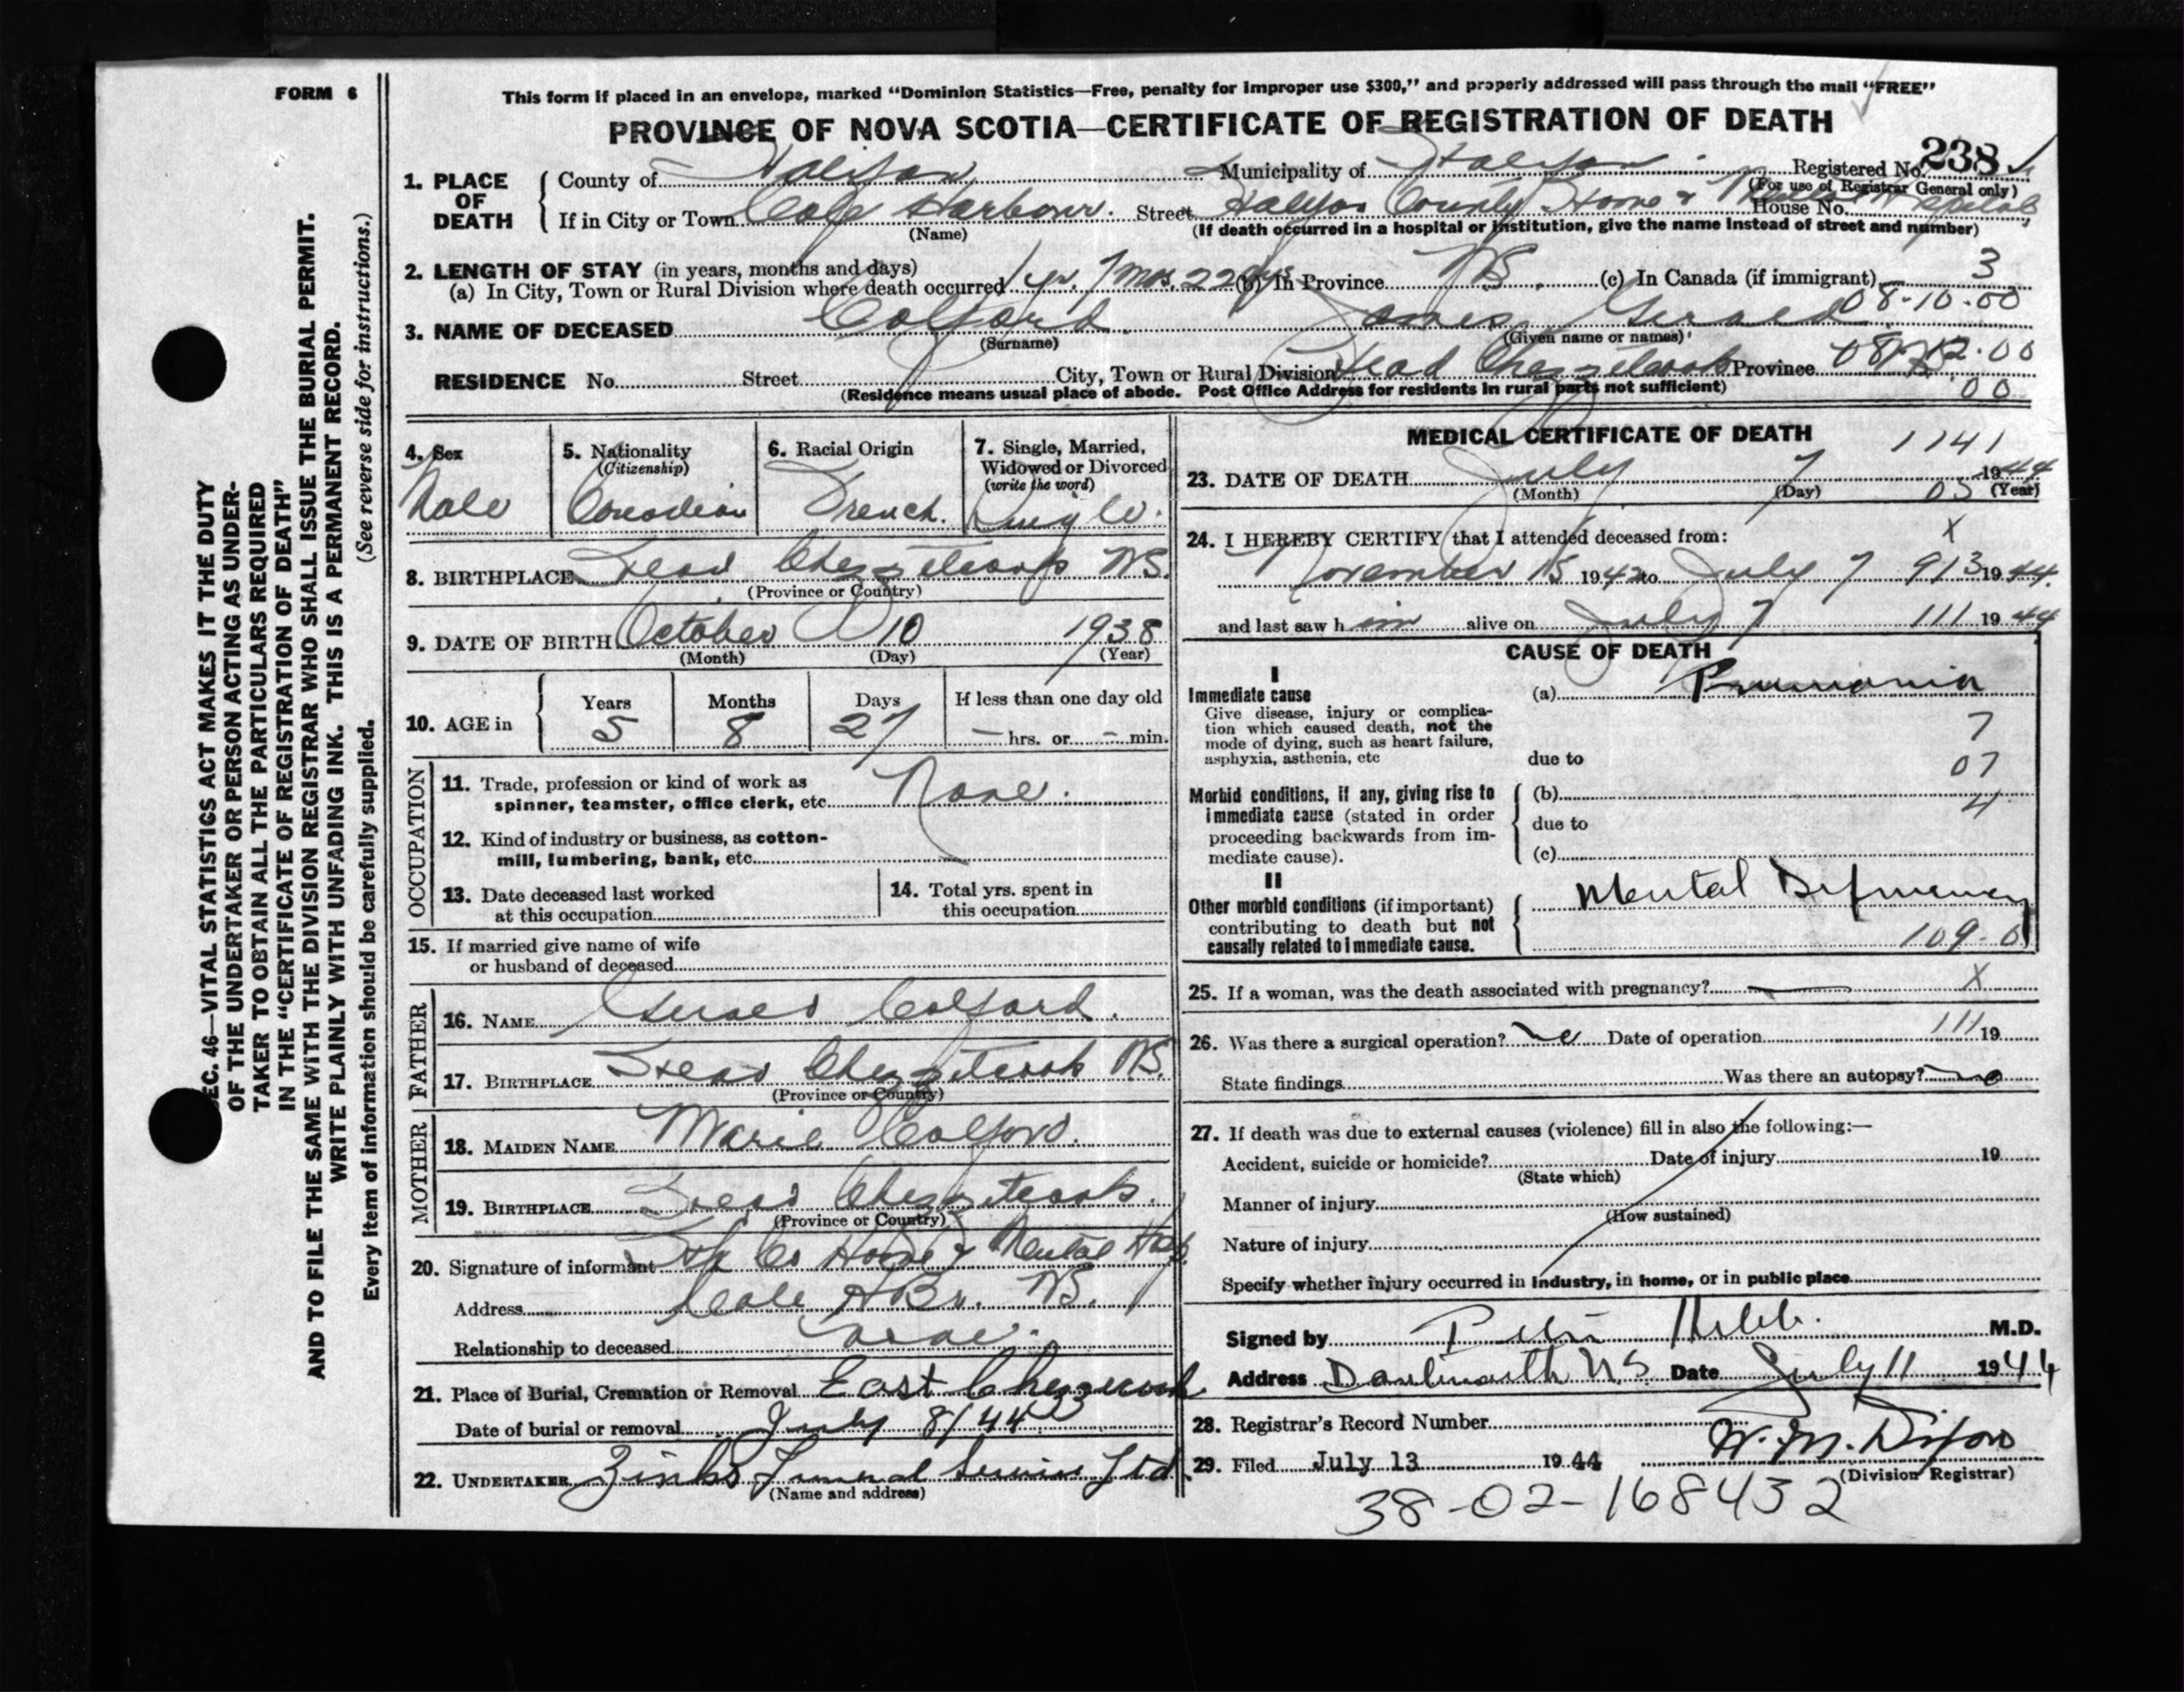 FORM 6
This form if placed in an envelope, marked "Dominion Statistics—Free, penalty for improper use $300," and properly addressed will pass through the mail "FREE"
PROVINCE OF NOVA SCOTIA—CERTIFICATE OF REGISTRATION OF DEATH
238
1. PLACE OF DEATH
County of Halifax Municipality of Halifax Registered No.
(For use of Registrar General only)
If in City or Town Cole Harbour. Street Halifax County Home & Mental Hospital, House No.
(Name)
(If death occurred in a hospital or institution, give the name instead of street and number)
2. LENGTH OF STAY (in years, months and days)
(a) In City, Town or Rural Division where death occurred 1 yr. 7 mos. 22 dys (b) In Province NS. (c) In Canada (if immigrant) 3
08-10-00
3. NAME OF DECEASED Colford James Gerald
(Surname) (Given name or names)
RESIDENCE No. Street City, Town or Rural Division Head Chezzetcook Province 08-12-00
(Residence means usual place of abode. Post Office Address for residents in rural parts not sufficient)
00
4. Sex
Male
5. Nationality
(Citizenship)
Canadian
6. Racial Origin
French.
7. Single, Married, Widowed or Divorced
(write the word)
Single.
8. BIRTHPLACE Head Chezzetcook NS.
(Province or Country)
9. DATE OF BIRTH October 10 1938
(Month) (Day) (Year)
10. AGE in
Years Months Days If less than one day old
5 8 27 — hrs. or — min.
OCCUPATION
11. Trade, profession or kind of work as
spinner, teamster, office clerk, etc. None.
12. Kind of industry or business, as cotton-
mill, lumbering, bank, etc.
13. Date deceased last worked
at this occupation
14. Total yrs. spent in
this occupation
15. If married give name of wife
or husband of deceased
FATHER
16. NAME Gerald Colford.
17. BIRTHPLACE Head Chezzetcook N.S.
(Province or Country)
MOTHER
18. MAIDEN NAME Marie Colford.
19. BIRTHPLACE Head Chezzetcook.
(Province or Country)
20. Signature of informant Hfx Co Home & Mental Hosp.
Address Cole HBr. NS.
Relationship to deceased None.
21. Place of Burial, Cremation or Removal East Chezzetcook
Date of burial or removal July 8/44
22. UNDERTAKER Zinks Funeral Service Ltd.
(Name and address)
MEDICAL CERTIFICATE OF DEATH
1141
23. DATE OF DEATH July 7 1944
(Month) (Day) 05 (Year)
24. I HEREBY CERTIFY that I attended deceased from: X
November 15 1942 to July 7 913 1944.
and last saw him alive on July 7 111 1944
CAUSE OF DEATH
I
Immediate cause
Give disease, injury or complica-
tion which caused death, not the
mode of dying, such as heart failure,
asphyxia, asthenia, etc
(a) Pneumonia
7
due to
07
Morbid conditions, if any, giving rise to
immediate cause (stated in order
proceeding backwards from im-
mediate cause).
(b) 4
due to
(c)
II
Other morbid conditions (if important)
contributing to death but not
causally related to immediate cause.
Mental Deficiency
109-0
25. If a woman, was the death associated with pregnancy? — X
26. Was there a surgical operation? no Date of operation 111 19
State findings Was there an autopsy? no
27. If death was due to external causes (violence) fill in also the following:—
Accident, suicide or homicide? Date of injury 19
(State which)
Manner of injury
(How sustained)
Nature of injury
Specify whether injury occurred in industry, in home, or in public place
Signed by M.D.
Address Dartmouth N.S Date July 11 1944
28. Registrar's Record Number
29. Filed July 13 1944 W. M. Dixon
(Division Registrar)
38-02-168432
SEC. 46—VITAL STATISTICS ACT MAKES IT THE DUTY
OF THE UNDERTAKER OR PERSON ACTING AS UNDER-
TAKER TO OBTAIN ALL THE PARTICULARS REQUIRED
IN THE "CERTIFICATE OF REGISTRATION OF DEATH"
AND TO FILE THE SAME WITH THE DIVISION REGISTRAR WHO SHALL ISSUE THE BURIAL PERMIT.
WRITE PLAINLY WITH UNFADING INK. THIS IS A PERMANENT RECORD.
(See reverse side for instructions.)
Every item of information should be carefully supplied.